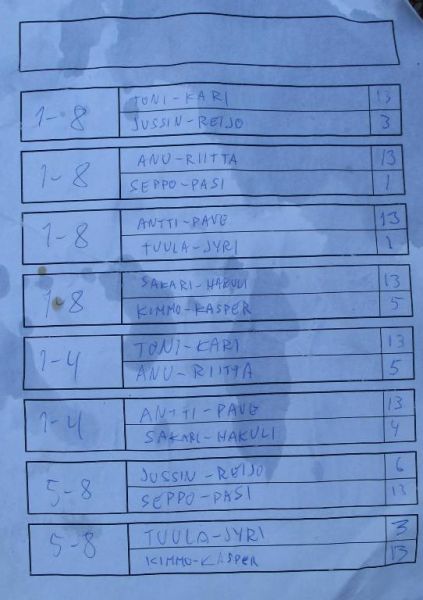 1-8 TONI-KARI 13
JUSSIN-REIJO 3
1-8 ANU-RIITTA 13
SEPPO-PASI 1
1-8 ANTTI-PAVE 13
TUULA-JYRI 1
1-8 SAKARI-HAKULI 13
KIMMO-KASPER 5
1-4 TONI-KARI 13
ANU-RIITTA 5
1-4 ANTTI-PAVE 13
SAKARI-HAKULI 4
5-8 JUSSIN-REIJO 6
SEPPO-PASI 13
5-8 TUULA-JYRI 3
KIMMO-KASPER 13